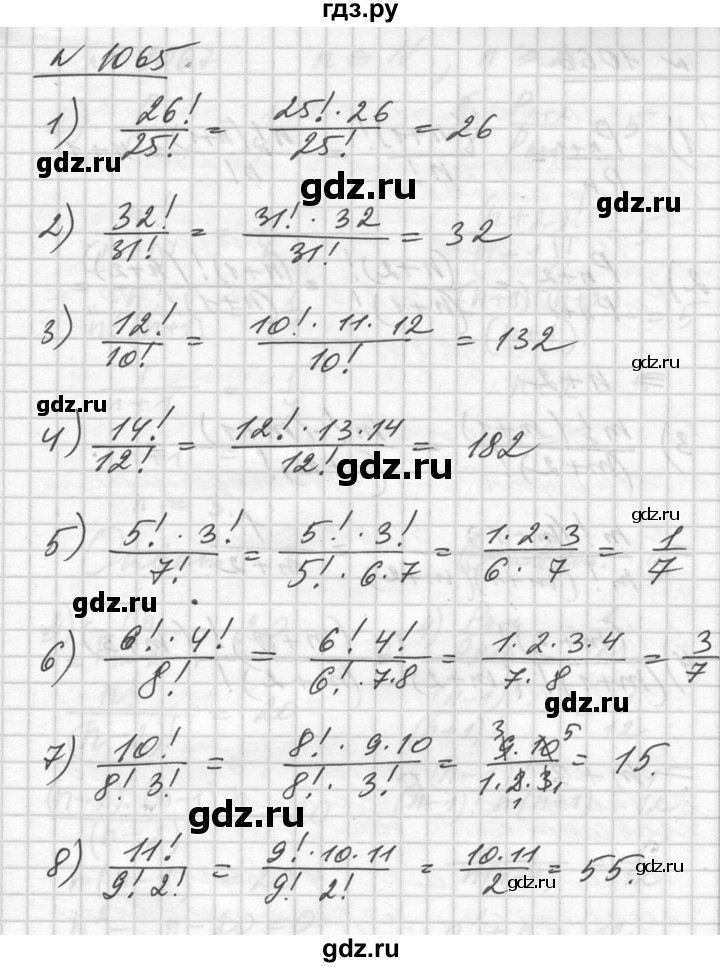 гдз.ру
№ 1065.
1) 26!/25! = 25!·26/25! = 26
gdz.ru
gdz.ru
gdz.ru
2) 32!/31! = 31!·32/31! = 32
3) 12!/10! = 10!·11·12/10! = 132
gdz.ru
gdz.ru
4) 14!/12! = 12!·13·14/12! = 182
gdz.ru
gdz.ru
5) 5!·3!/7! = 5!·3!/5!·6·7 = 1·2·3/6·7 = 1/7
gdz.ru
6) 6!·4!/8! = 6!4!/6!·7·8 = 1·2·3·4/7·8 = 3/7
gdz.ru
7) 10!/8!3! = 8!·9·10/8!·3! = 3 9·10 5/1·2·3 1 1 = 15.
gdz.ru
8) 11!/9!2! = 9!·10·11/9!2! = 10·11/2 = 55.
gdz.ru
gdz.ru
gdz.ru